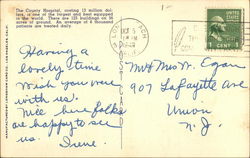 The County Hospital, costing 12 million dol-
lars, is one of the largest and best equipped
in the world. There are 123 buildings on 56
acres of ground. An average of 4 thousand
patients are treated daily.
Having a
lovely time
Wish you were
with us.
Nice here folks
are happy to see
us.
Irene.
OCT 5
PM
1¢
Mr & Mrs W. Egan
907 Lafayette Ave
Union
N. J.